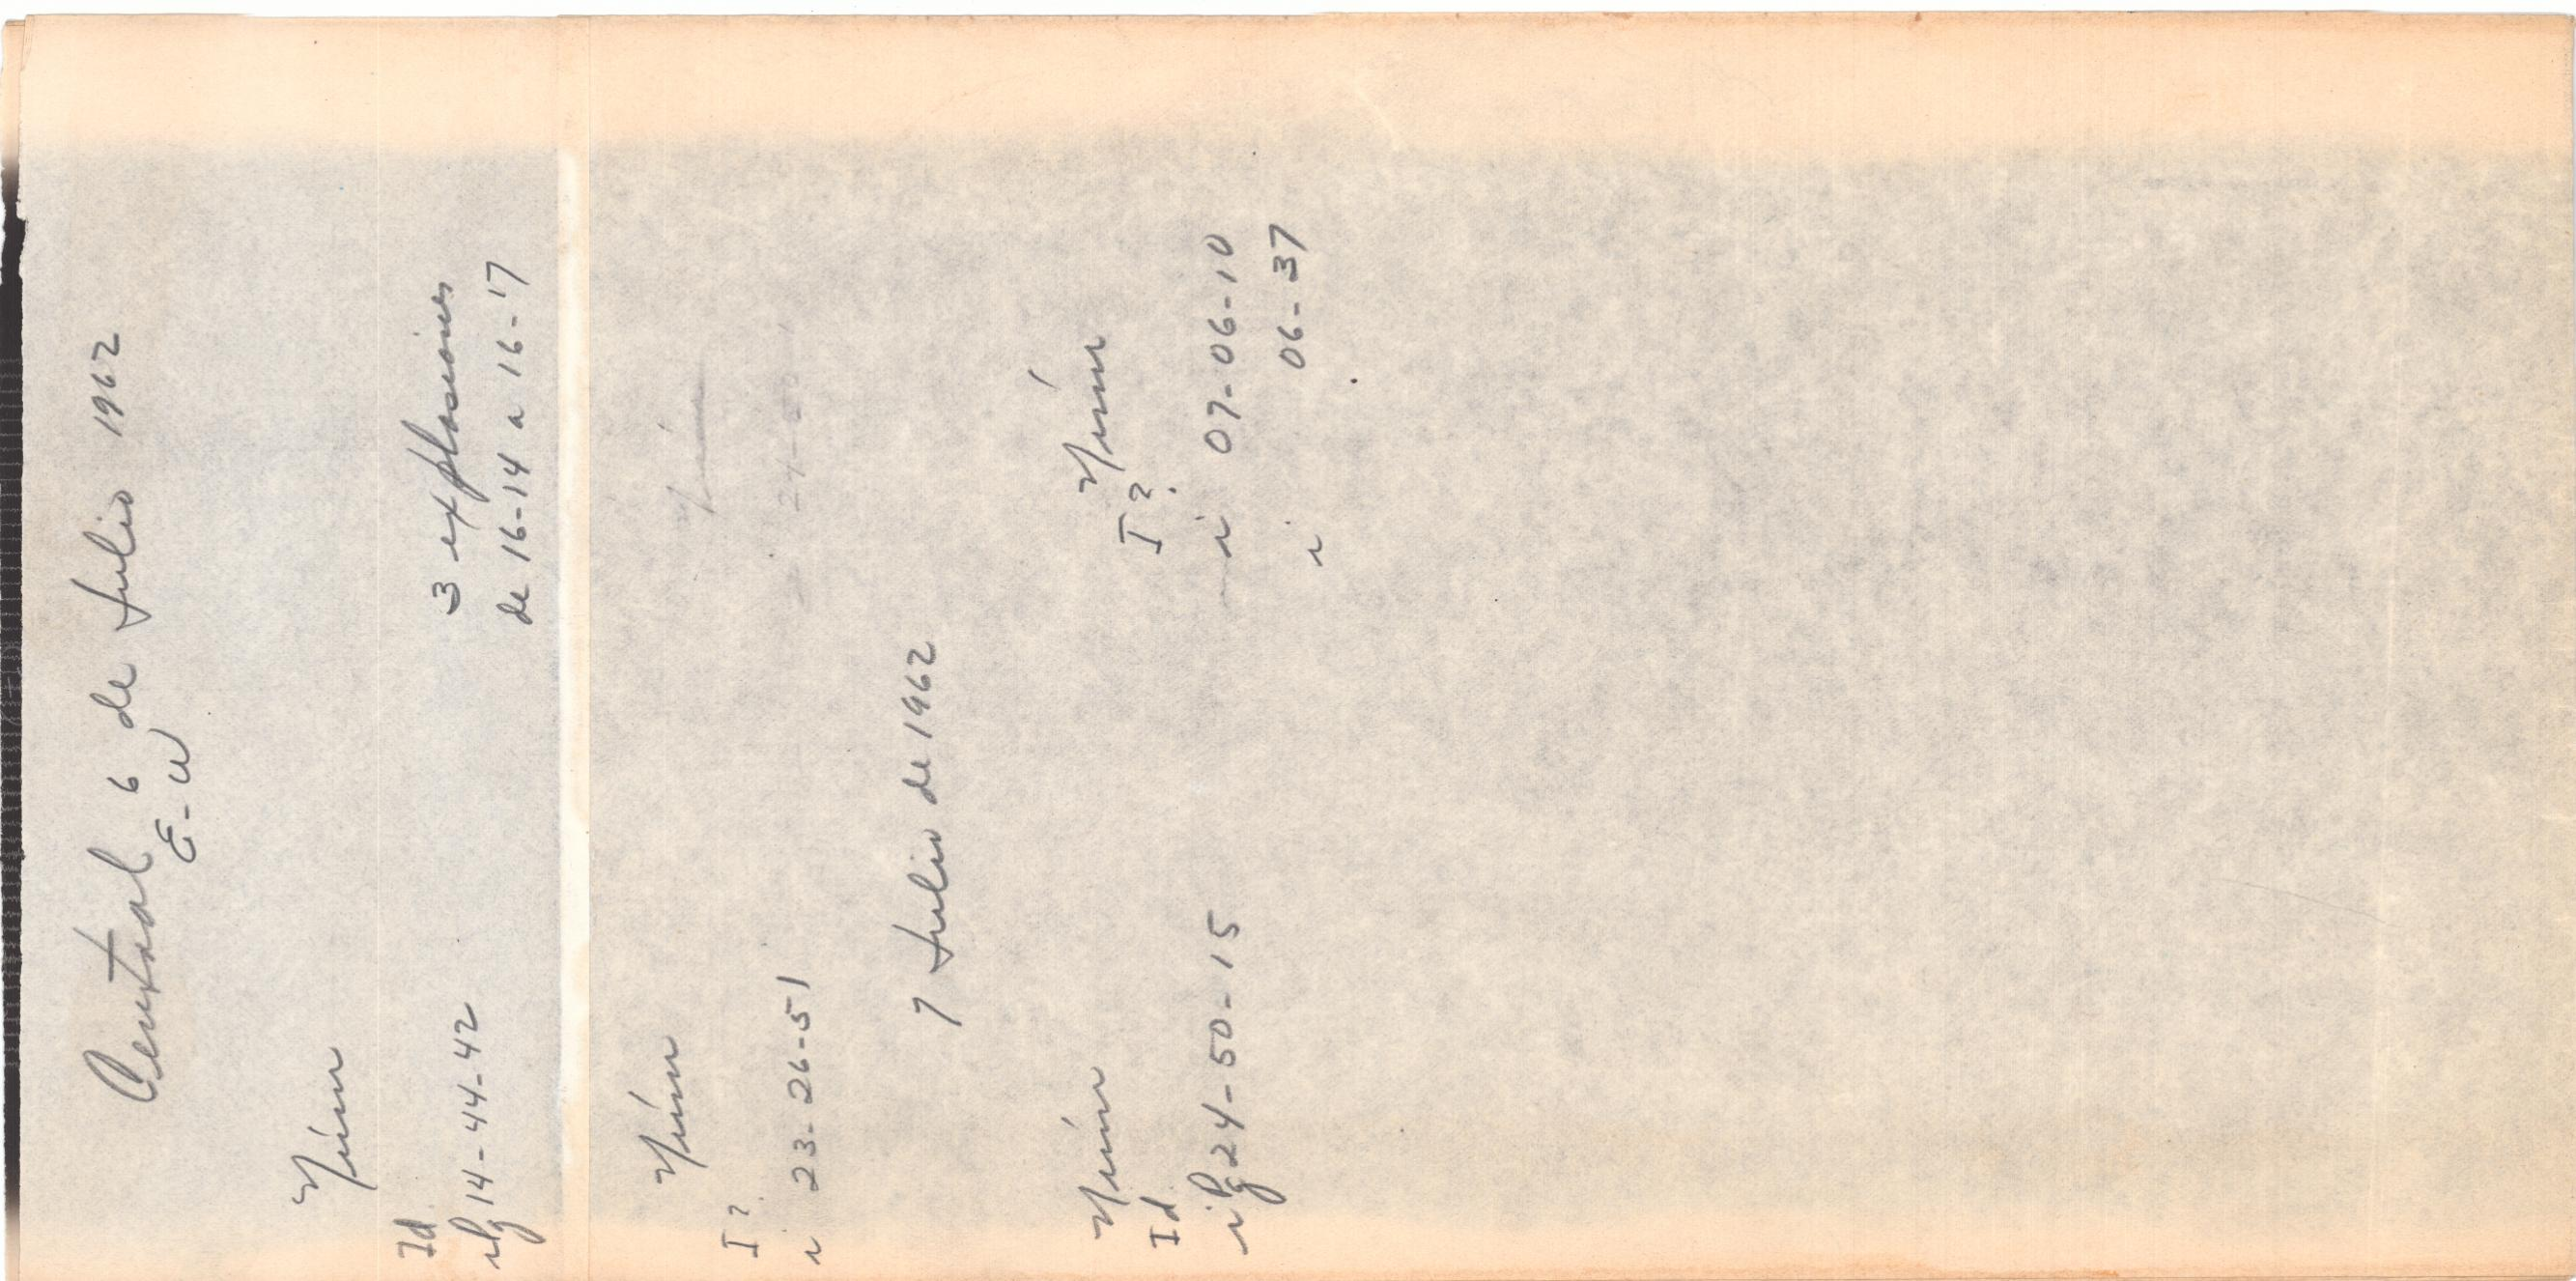 Central 6 de Julio 1962
E-W
Núm
Id
iPg 14-44-42
3 explosiones
de 16-14 a 16-17
Núm
I?
i 23-26-51
7 Julio de 1962
Núm
Id
iPg 24-50-15
Núm
I?
i 07-06-10
i 06-37